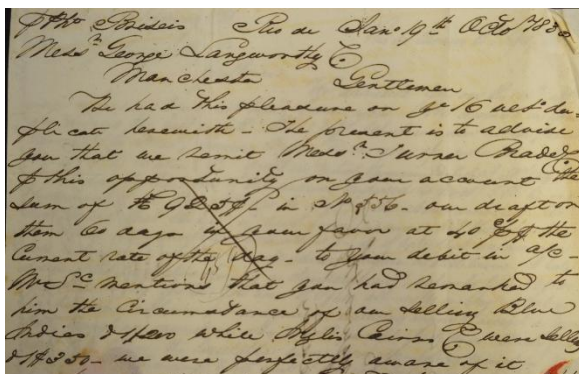 Briseis Rio de Jan.o 19th Octo.
Messrs George Langworthy & Co.
Manchester Gentlemen
We had this pleasure on ye 16 du-
plicate herewith - The present is to advise
you that we remit Messrs Turner Brade & Co.
this opportunity on your account the
Sum of in our draft on
them 60 days in your favor at 40 the
Current rate of the day - to your debit in a/c -
Mr mentions that you had remarked to
him the Circumstance of our selling Blue
Indies while Cairns & Co were selling
we were perfectly aware of it